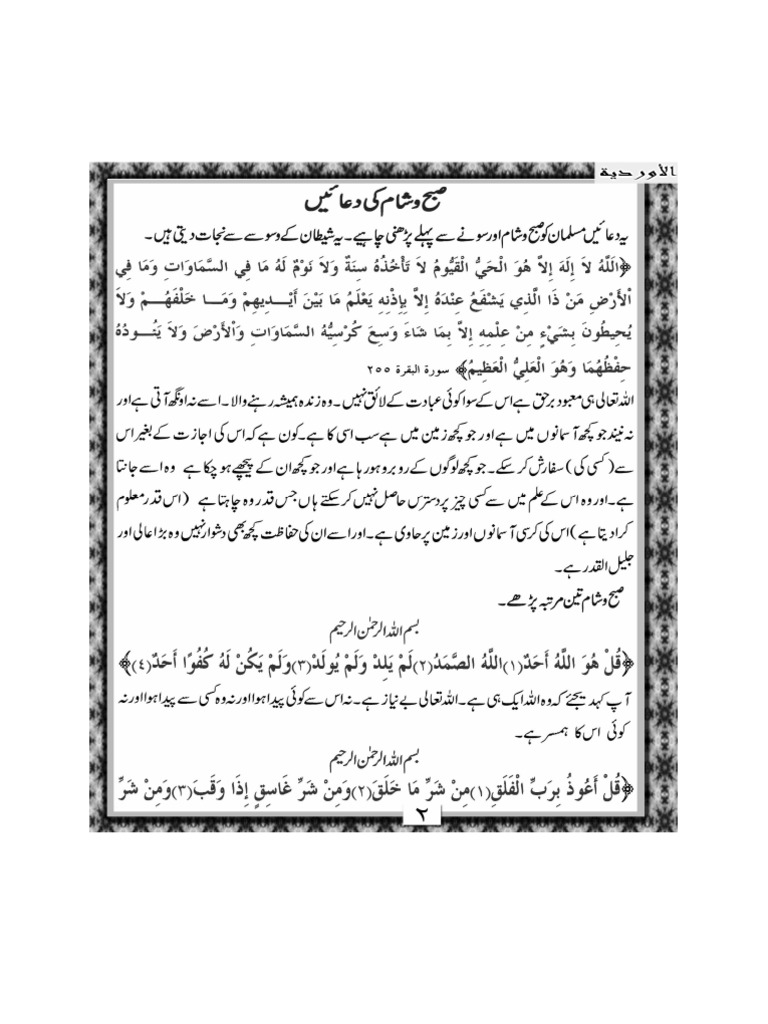 الأوردية
صبح و شام کی دعائیں
یہ دعائیں مسلمان کو صبح و شام اور سونے سے پہلے پڑھنی چاہیے۔ یہ شیطان کے وسوسے سے نجات دیتی ہیں۔
﴿اللَّهُ لاَ إِلَهَ إِلاَّ هُوَ الْحَيُّ الْقَيُّومُ لاَ تَأْخُذُهُ سِنَةٌ وَلاَ نَوْمٌ لَهُ مَا فِي السَّمَاوَاتِ وَمَا فِي
الْأَرْضِ مَنْ ذَا الَّذِي يَشْفَعُ عِنْدَهُ إِلاَّ بِإِذْنِهِ يَعْلَمُ مَا بَيْنَ أَيْـــدِيهِمْ وَمَـــا خَلْفَهُـــمْ وَلاَ
يُحِيطُونَ بِشَيْءٍ مِنْ عِلْمِهِ إِلاَّ بِمَا شَاءَ وَسِعَ كُرْسِيُّهُ السَّمَاوَاتِ وَالْأَرْضَ وَلاَ يَئُـــودُهُ
حِفْظُهُمَا وَهُوَ الْعَلِيُّ الْعَظِيمُ﴾ سورة البقرة ٢٥٥
اللہ تعالی ہی معبود برحق ہے اس کے سوا کوئی عبادت کے لائق نہیں۔ وہ زندہ ہمیشہ رہنے والا۔ اسے نہ اونگھ آتی ہے اور
نہ نیند جو کچھ آسمانوں میں ہے اور جو کچھ زمین میں ہے سب اسی کا ہے۔ کون ہے کہ اس کی اجازت کے بغیر اس
سے (کسی کی) سفارش کر سکے۔ جو کچھ لوگوں کے رو برو ہو رہا ہے اور جو کچھ ان کے پیچھے ہو چکا ہے وہ اسے جانتا
ہے۔ اور وہ اس کے علم میں سے کسی چیز پر دسترس حاصل نہیں کر سکتے ہاں جس قدر وہ چاہتا ہے (اس قدر معلوم
کرا دیتا ہے) اس کی کرسی آسمانوں اور زمین پر حاوی ہے۔ اور اسے ان کی حفاظت کچھ بھی دشوار نہیں وہ بڑا عالی اور
جلیل القدر ہے۔
صبح و شام تین مرتبہ پڑھے۔
بسم اللہ الرحمٰن الرحیم
﴿قُلْ هُوَ اللَّهُ أَحَدٌ(١)اللَّهُ الصَّمَدُ(٢)لَمْ يَلِدْ وَلَمْ يُولَدْ(٣)وَلَمْ يَكُنْ لَهُ كُفُوًا أَحَدٌ(٤)﴾
آپ کہہ دیجئے کہ وہ اللہ ایک ہی ہے۔ اللہ تعالی بے نیاز ہے۔ نہ اس سے کوئی پیدا ہوا اور نہ وہ کسی سے پیدا ہوا اور نہ
کوئی اس کا ہمسر ہے۔
بسم اللہ الرحمٰن الرحیم
﴿قُلْ أَعُوذُ بِرَبِّ الْفَلَقِ(١)مِنْ شَرِّ مَا خَلَقَ(٢)وَمِنْ شَرِّ غَاسِقٍ إِذَا وَقَبَ(٣)وَمِنْ شَرِّ
٢